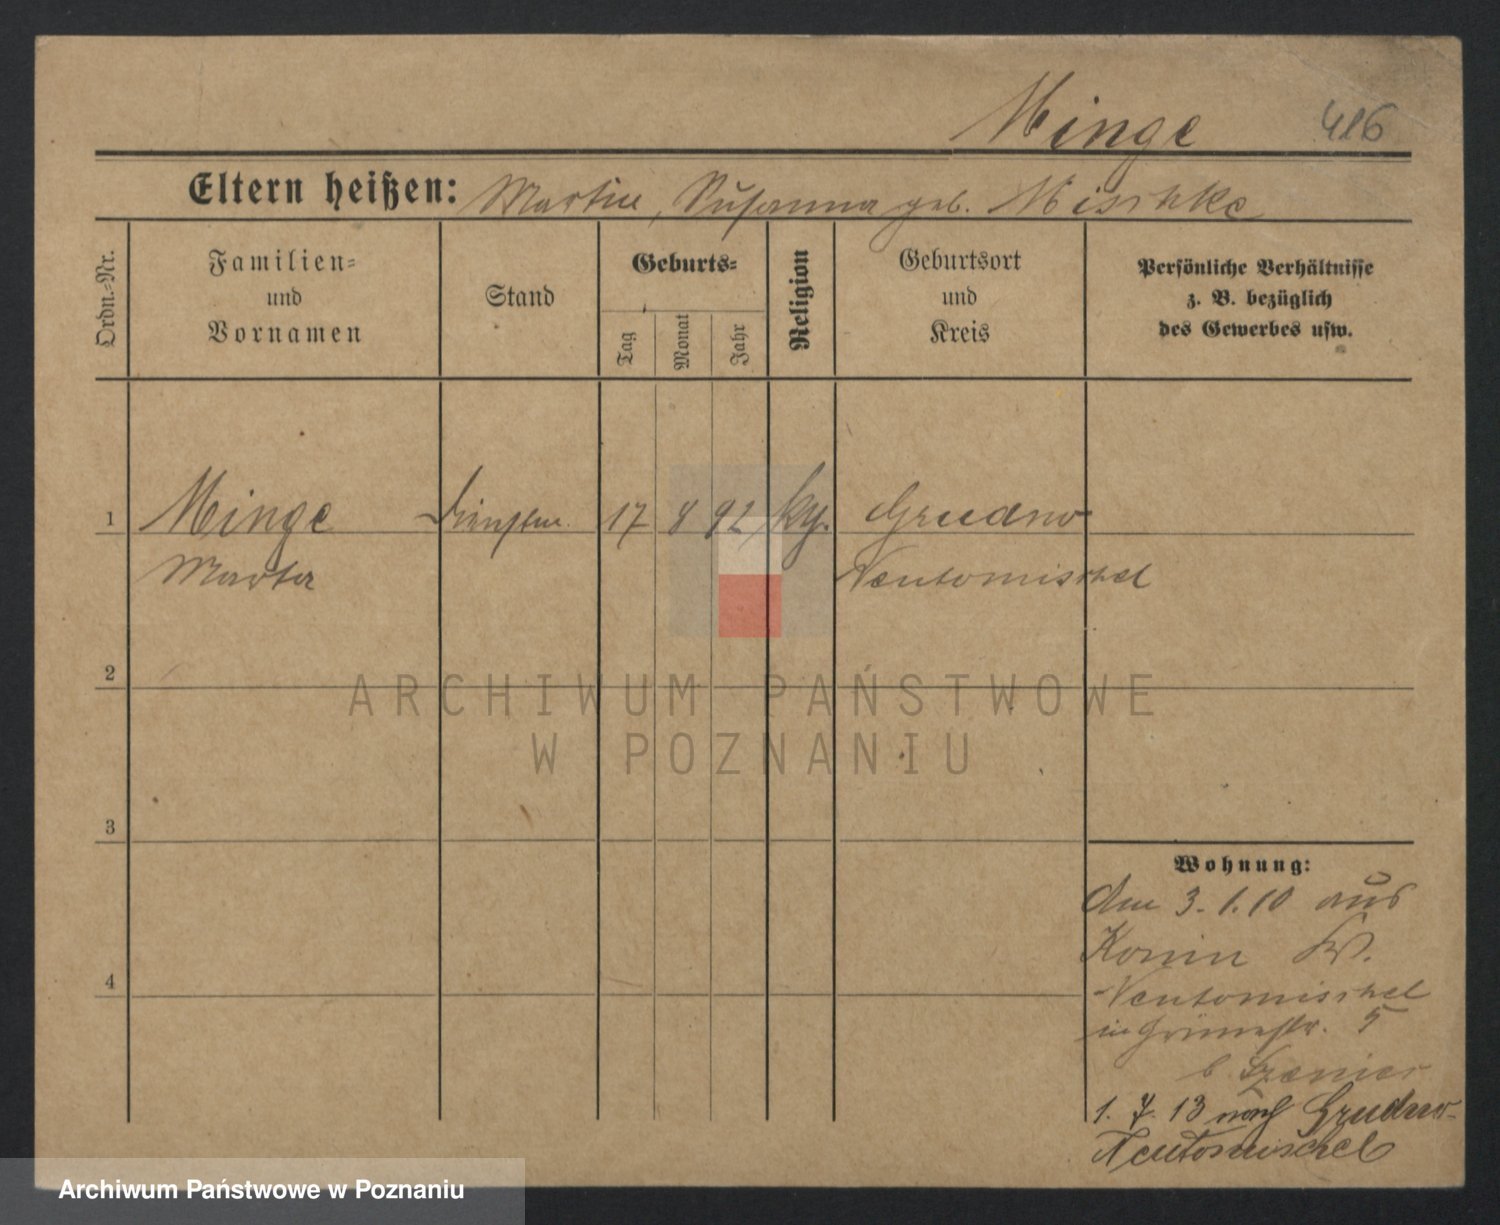 Minge 416
Eltern heißen: Martin, Susanna geb. Mischke
Ordn.-Nr.
Familien-
und
Vornamen
Stand
Geburts-
Tag
Monat
Jahr
Religion
Geburtsort
und
Kreis
Persönliche Verhältnisse
z. B. bezüglich
des Gewerbes usw.
1 Minge 17 92 Grudno
Marta Neutomischel
2
ARCHIWUM PAŃSTWOWE
W POZNANIU
3
Wohnung:
Am 3.1.10 aus
Konin
4
Neutomischel
in Grünestr. 5
b
1. 7. 13 nach Grudno-
Neutomischel
Archiwum Państwowe w Poznaniu